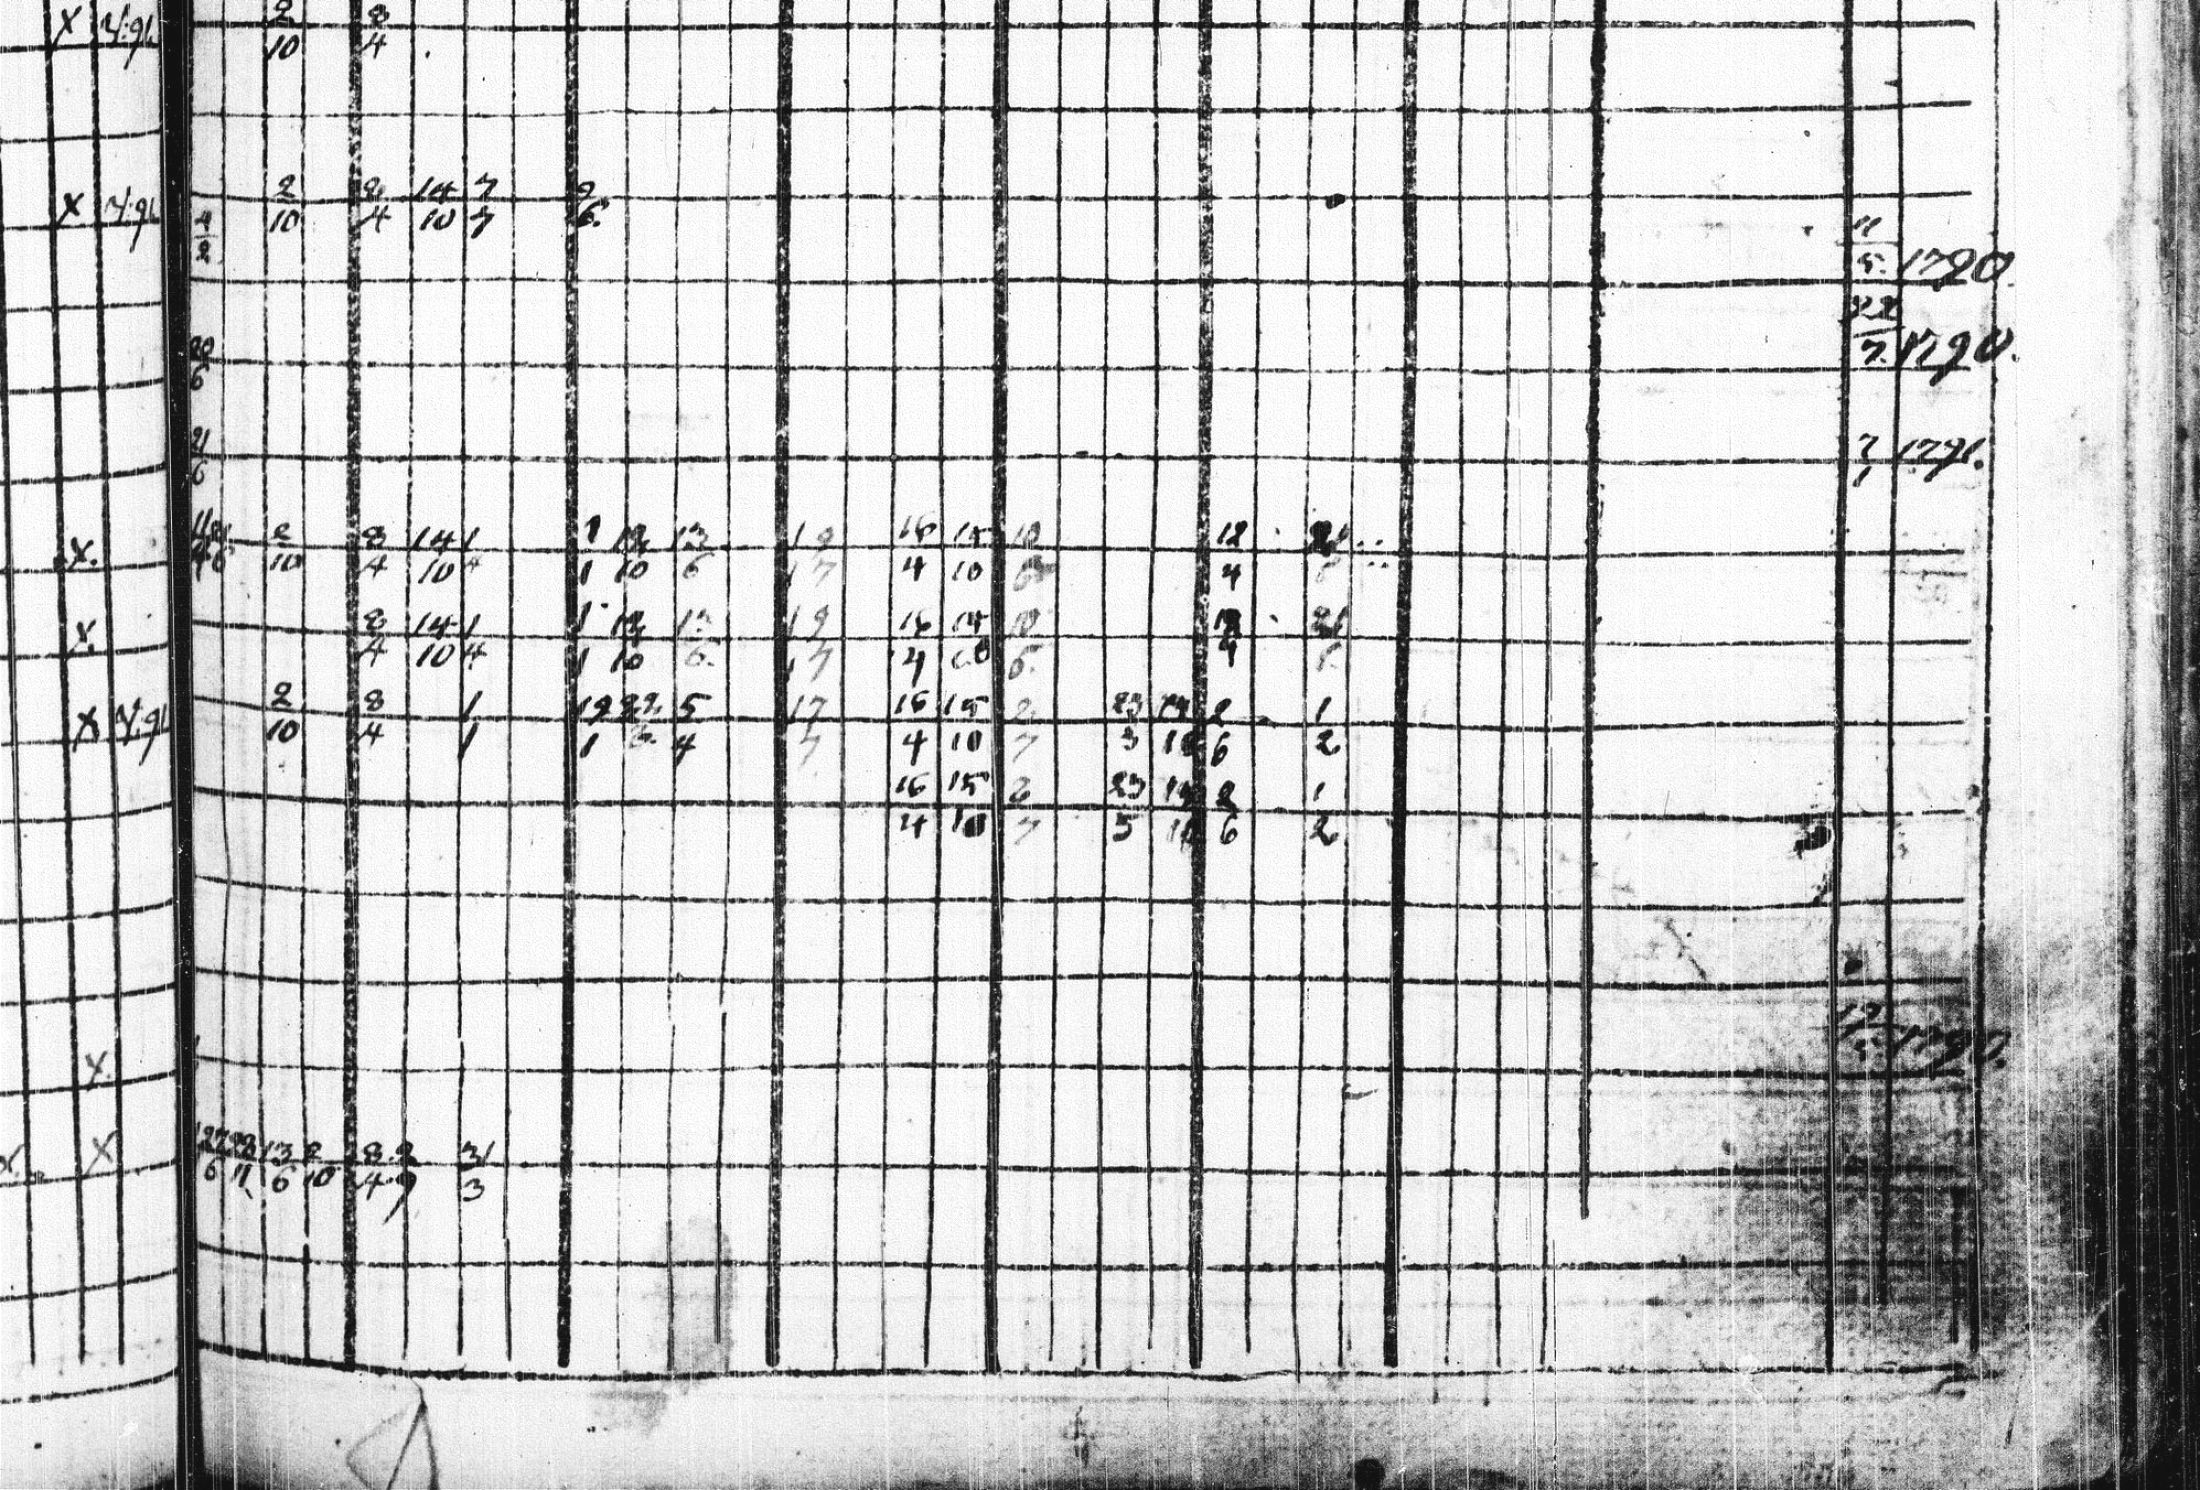 X
2 8
10 4
X 2 8 14 7 9
4/2 10 4 10 7 6.
11/5. 1790.
22/7. 1790.
20/6
21/6
7/1 1791.
X. 2 8 14 1 1 12 13 19 16 15 18 12 21
10 4 10 4 1 10 6 17 4 10 6 4
X. 8 14 1 1 12 13 19 16 15 18 12 21
4 10 4 1 10 6. 17 4 10 6. 4
X 2 8 1 19 22 5 17 16 15 2 23 14 2 1
10 4 1 1 6. 4 7 4 10 7 5 10 6 2
16 15 2 23 14 2 1
4 10 7 5 10 6 2
1790.
X.
X 27 28 13 2 8 2 31
6 11 6 10 4 9 3